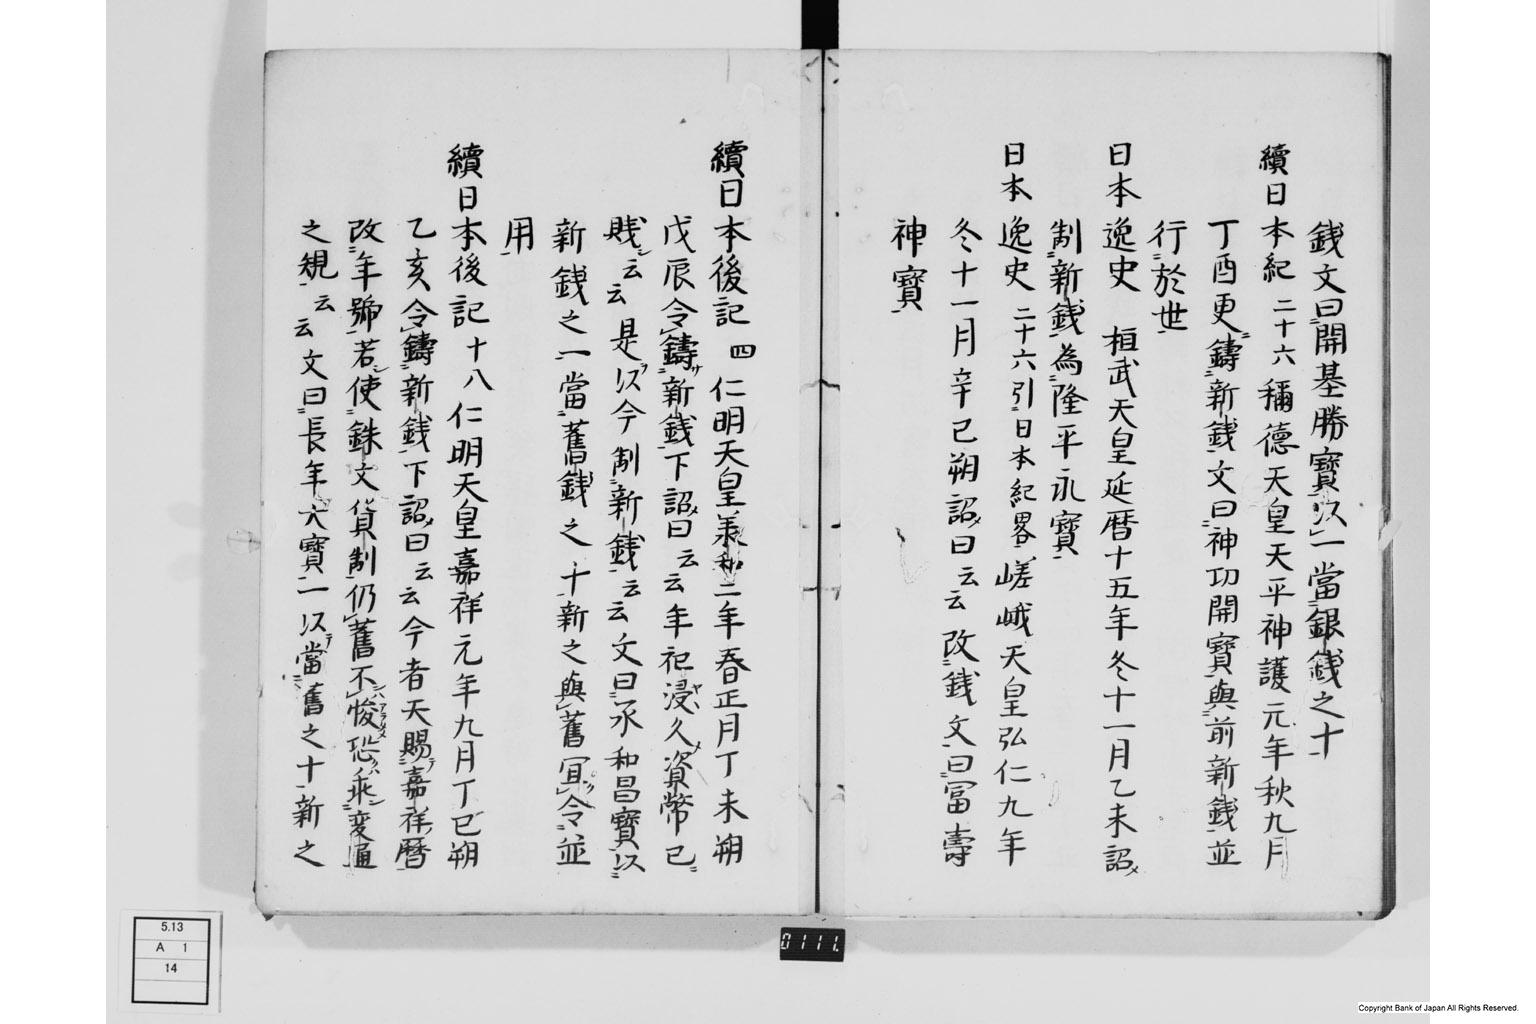 錢文曰開基勝寶以一當銀錢之十
續日本紀二十六稱德天皇天平神護元年秋九月
丁酉更鑄新錢文曰神功開寶與前新錢並
行於世
日本逸史 桓武天皇延暦十五年冬十一月乙未詔
制新錢為隆平永寶
日本逸史二十六引日本紀畧嵯峨天皇弘仁九年
冬十一月辛巳朔詔曰云云改錢文曰冨壽
神寶
續日本後記四仁明天皇義和二年春正月丁未朔
戊辰令鑄新錢下詔曰云云年祀浸久資幣已
賎云云是以今制新錢云云文曰承和昌寶以
新錢之一當舊錢之十新之與舊冝令並
用
續日本後記十八仁明天皇嘉祥元年九月丁巳朔
乙亥令鑄新錢下詔曰云云今者天賜嘉祥暦
改年號若使銖文貨制仍舊不悛恐乖変通
之規云云文曰長年大寶一以當舊之十新之
5.13
A 1
14
0111.
Copyright Bank of Japan All Rights Reserved.